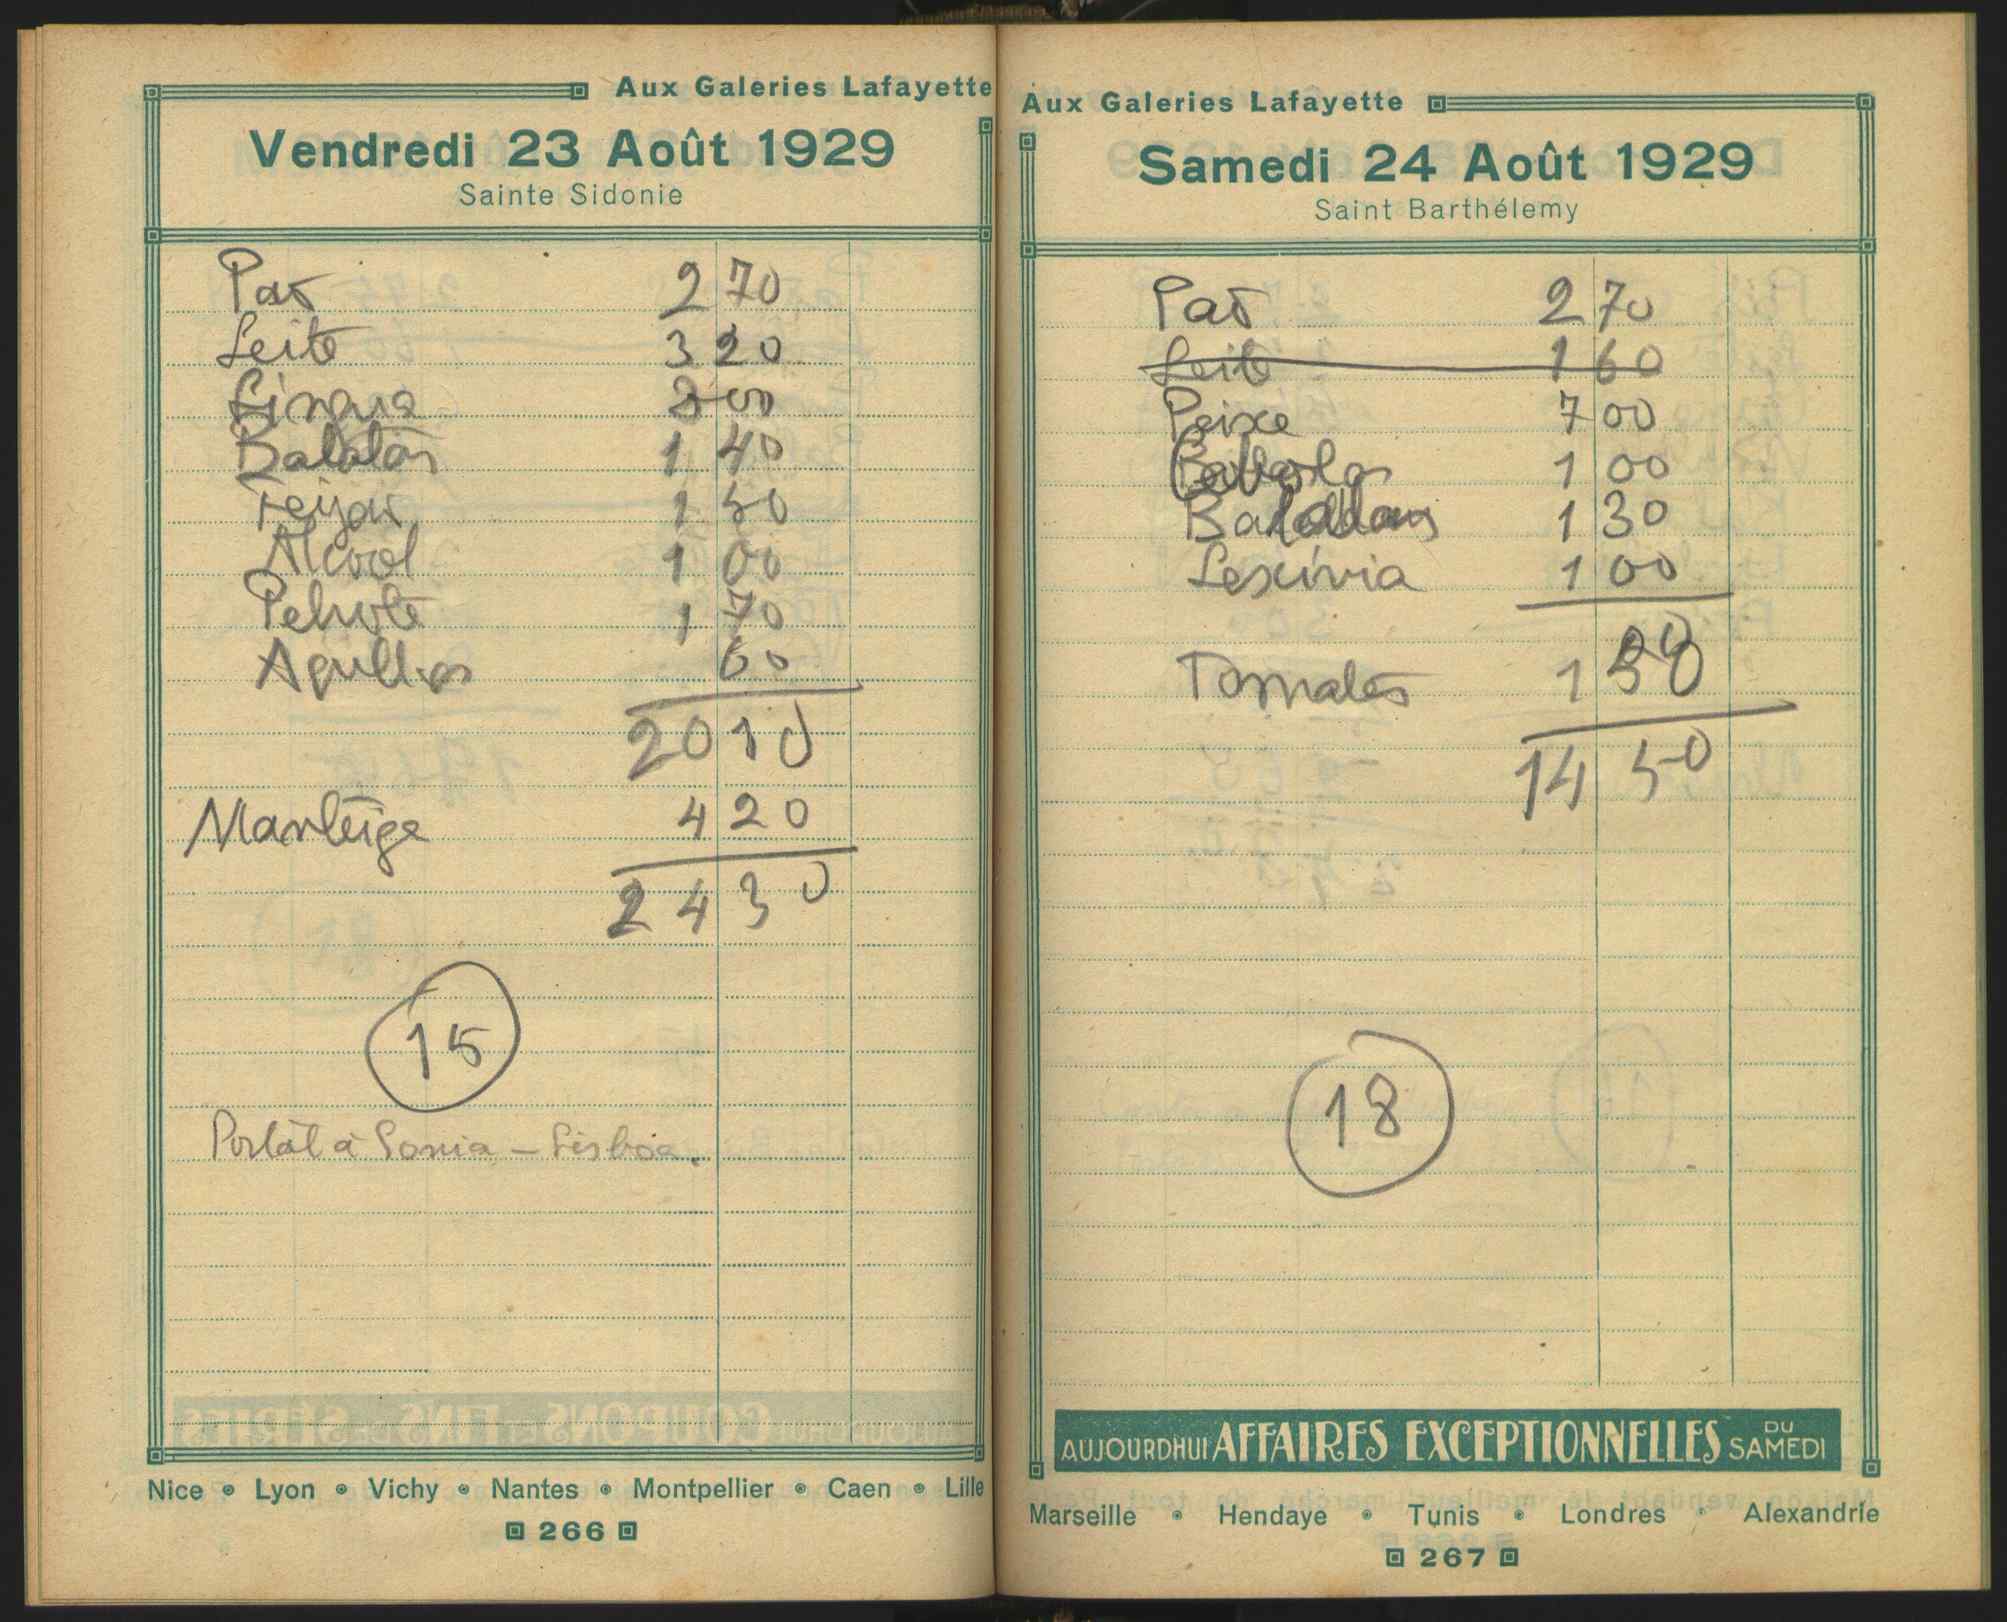 Aux Galeries Lafayette
Vendredi 23 Août 1929
Sainte Sidonie
Pao 2 70
Leite 3 20
Lingua 8 00
Batatas 1 40
Feijao 1 50
Alcool 1 00
1 70
Agulhas 60
20 10
Manteiga 4 20
24 30
15
Postal à Sonia – Lisboa.
Nice Lyon Vichy Nantes Montpellier Caen Lille
266
Aux Galeries Lafayette
Samedi 24 Août 1929
Saint Barthélemy
Paō 2 70
Leite 1 60
Peixe 7 00
1 00
1 30
Lexívia 1 00
Tomates 1
14 50
18
AUJOURDHUI AFFAIRES EXCEPTIONNELLES DU SAMEDI
Marseille Hendaye Tunis Londres Alexandrie
267